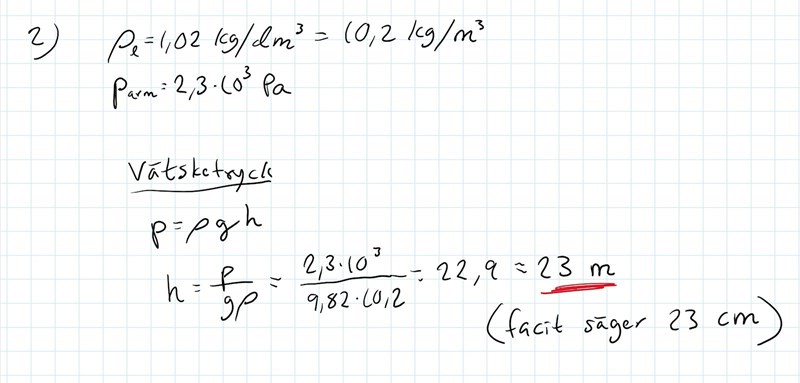 2) ρₗ = 1,02 kg/dm³ = 10,2 kg/m³
Parm = 2,3·10³ Pa
Vätsketryck
p = ρgh
h = p/gρ = 2,3·10³/9,82·10,2 = 22,9 ≈ 23 m
(facit säger 23 cm)